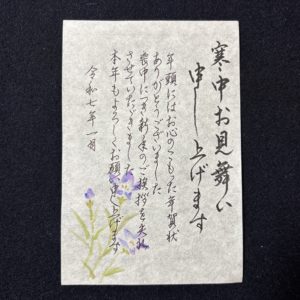 寒中お見舞い
申し上げます
年頭にはお心のこもった年賀状
ありがとうございました
喪中につき新年のご挨拶を失礼
させていただきました
本年もよろしくお願い申し上げます
令和七年一月